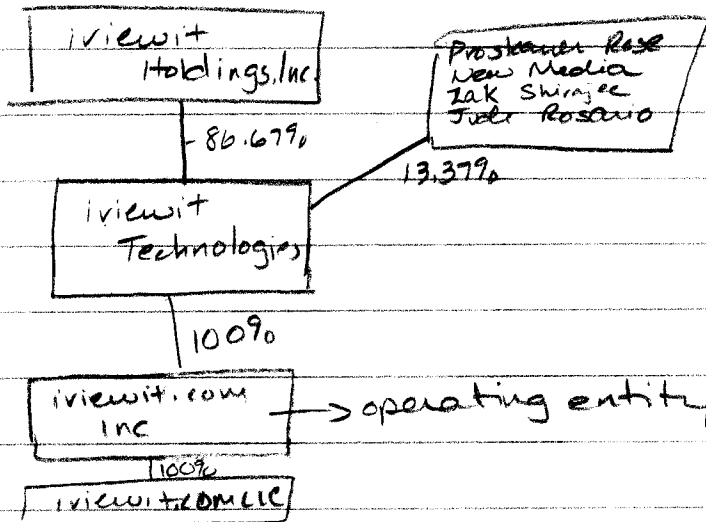 iviewit
Holdings, Inc.
Proskauer Rose
New Media
Zak Shirajee
Jude Rosario
86.67%
13.37%
iviewit
Technologies
100%
iviewit.com
Inc
→ operating entity
100%
iviewit.COM LLC